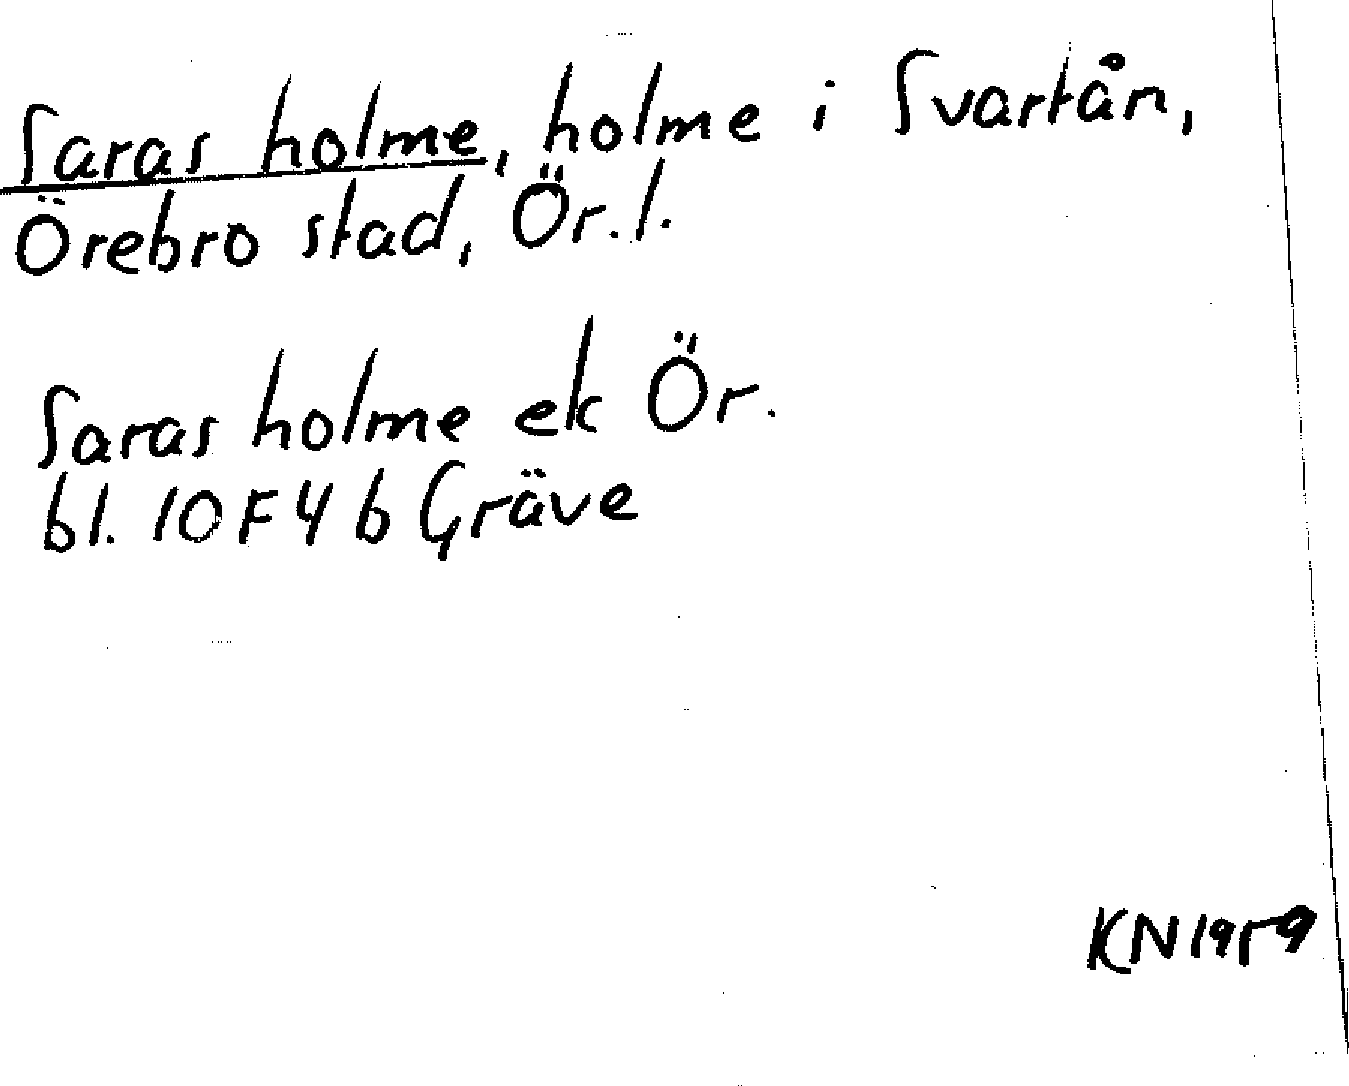 Saras holme, holme i Svartån,
Örebro stad, Ör. l.
Saras holme ek Ör.
bl. 10F4b Gräve
KN1959